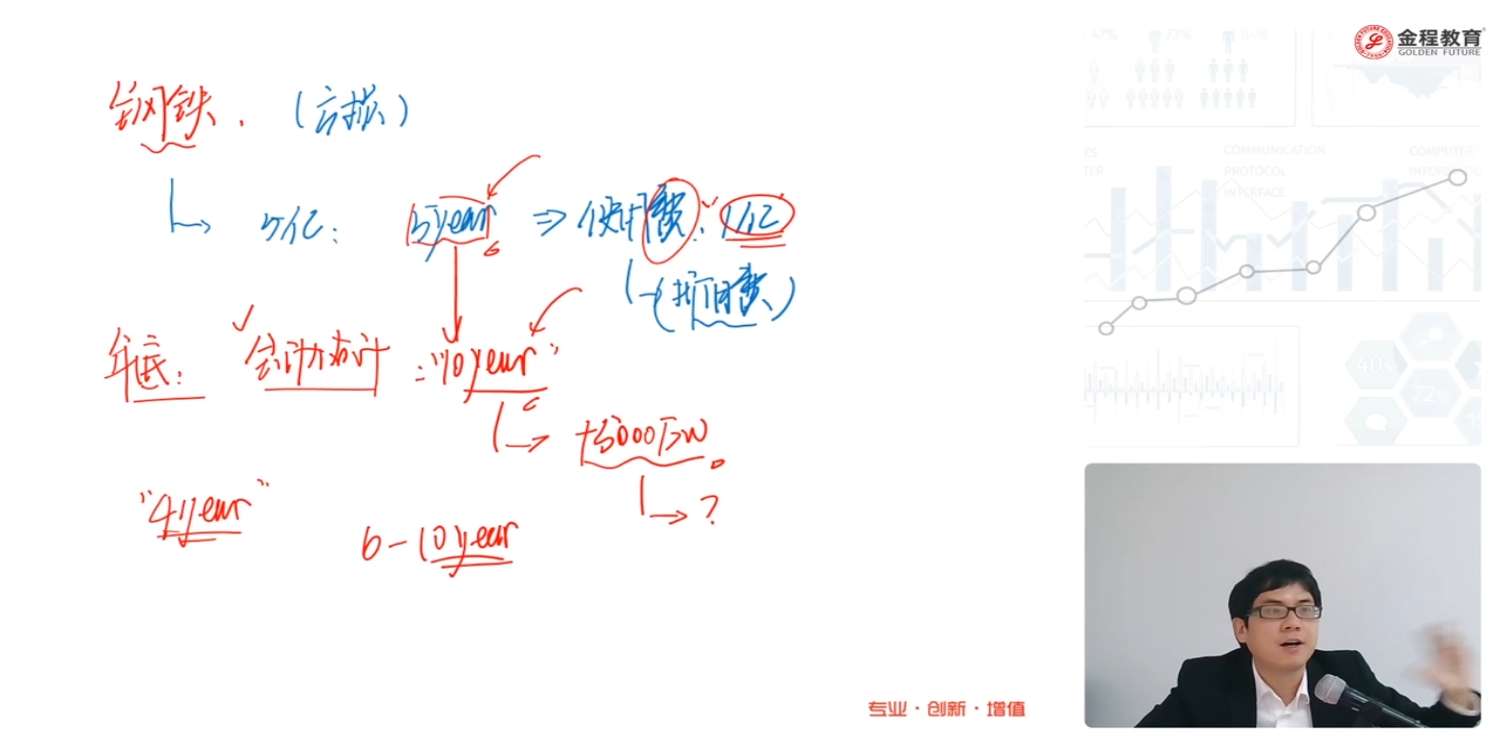 钢铁. (亏损)
5亿: 5year ⇒ 使用费: 1亿
(折旧费)
年底: 会计估计: "10year"
+5000万w
?
"4year"
6-10year
金程教育
GOLDEN FUTURE
COMMUNICATION
PROTOCOL
INTERFACE
40%
22%
专业·创新·增值